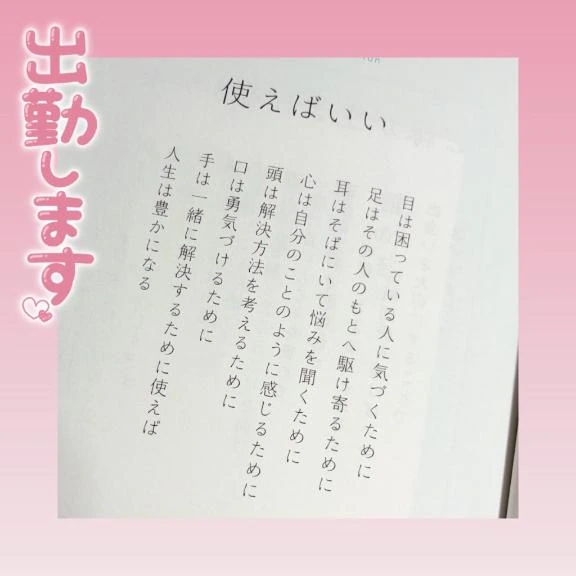 出勤します
使えばいい
目は困っている人に気づくために
足はその人のもとへ駆け寄るために
耳はそばにいて悩みを聞くために
心は自分のことのように感じるために
頭は解決方法を考えるために
口は勇気づけるために
手は一緒に解決するために使えば
人生は豊かになる